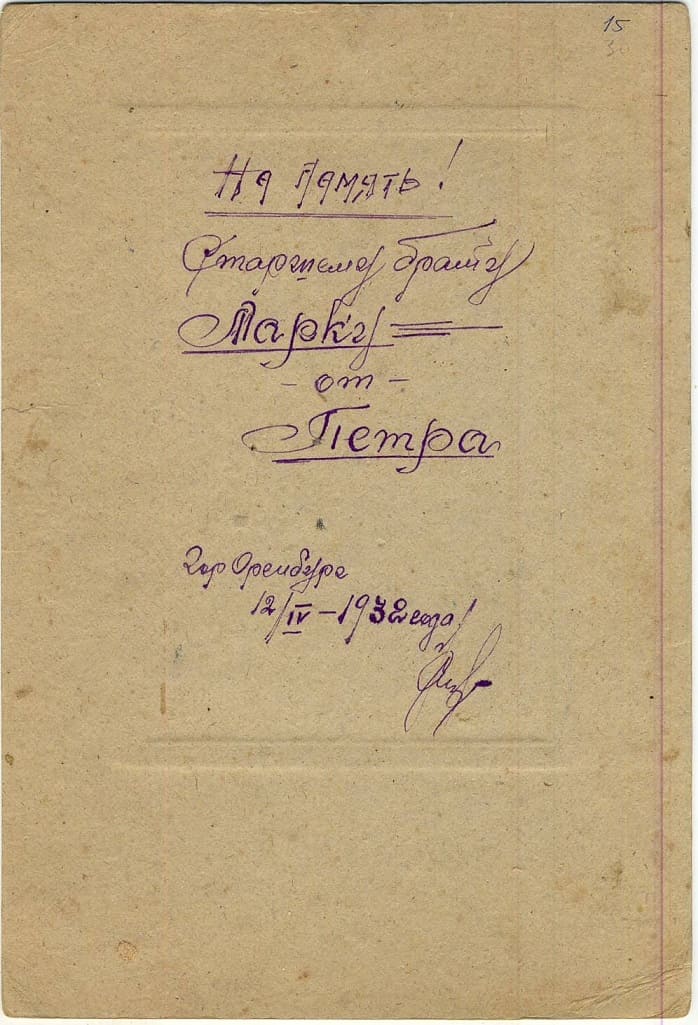 15
30
На память!
Старшему брату
Марку
- от -
Петра
гор Оренбург
12/IV-1932 года